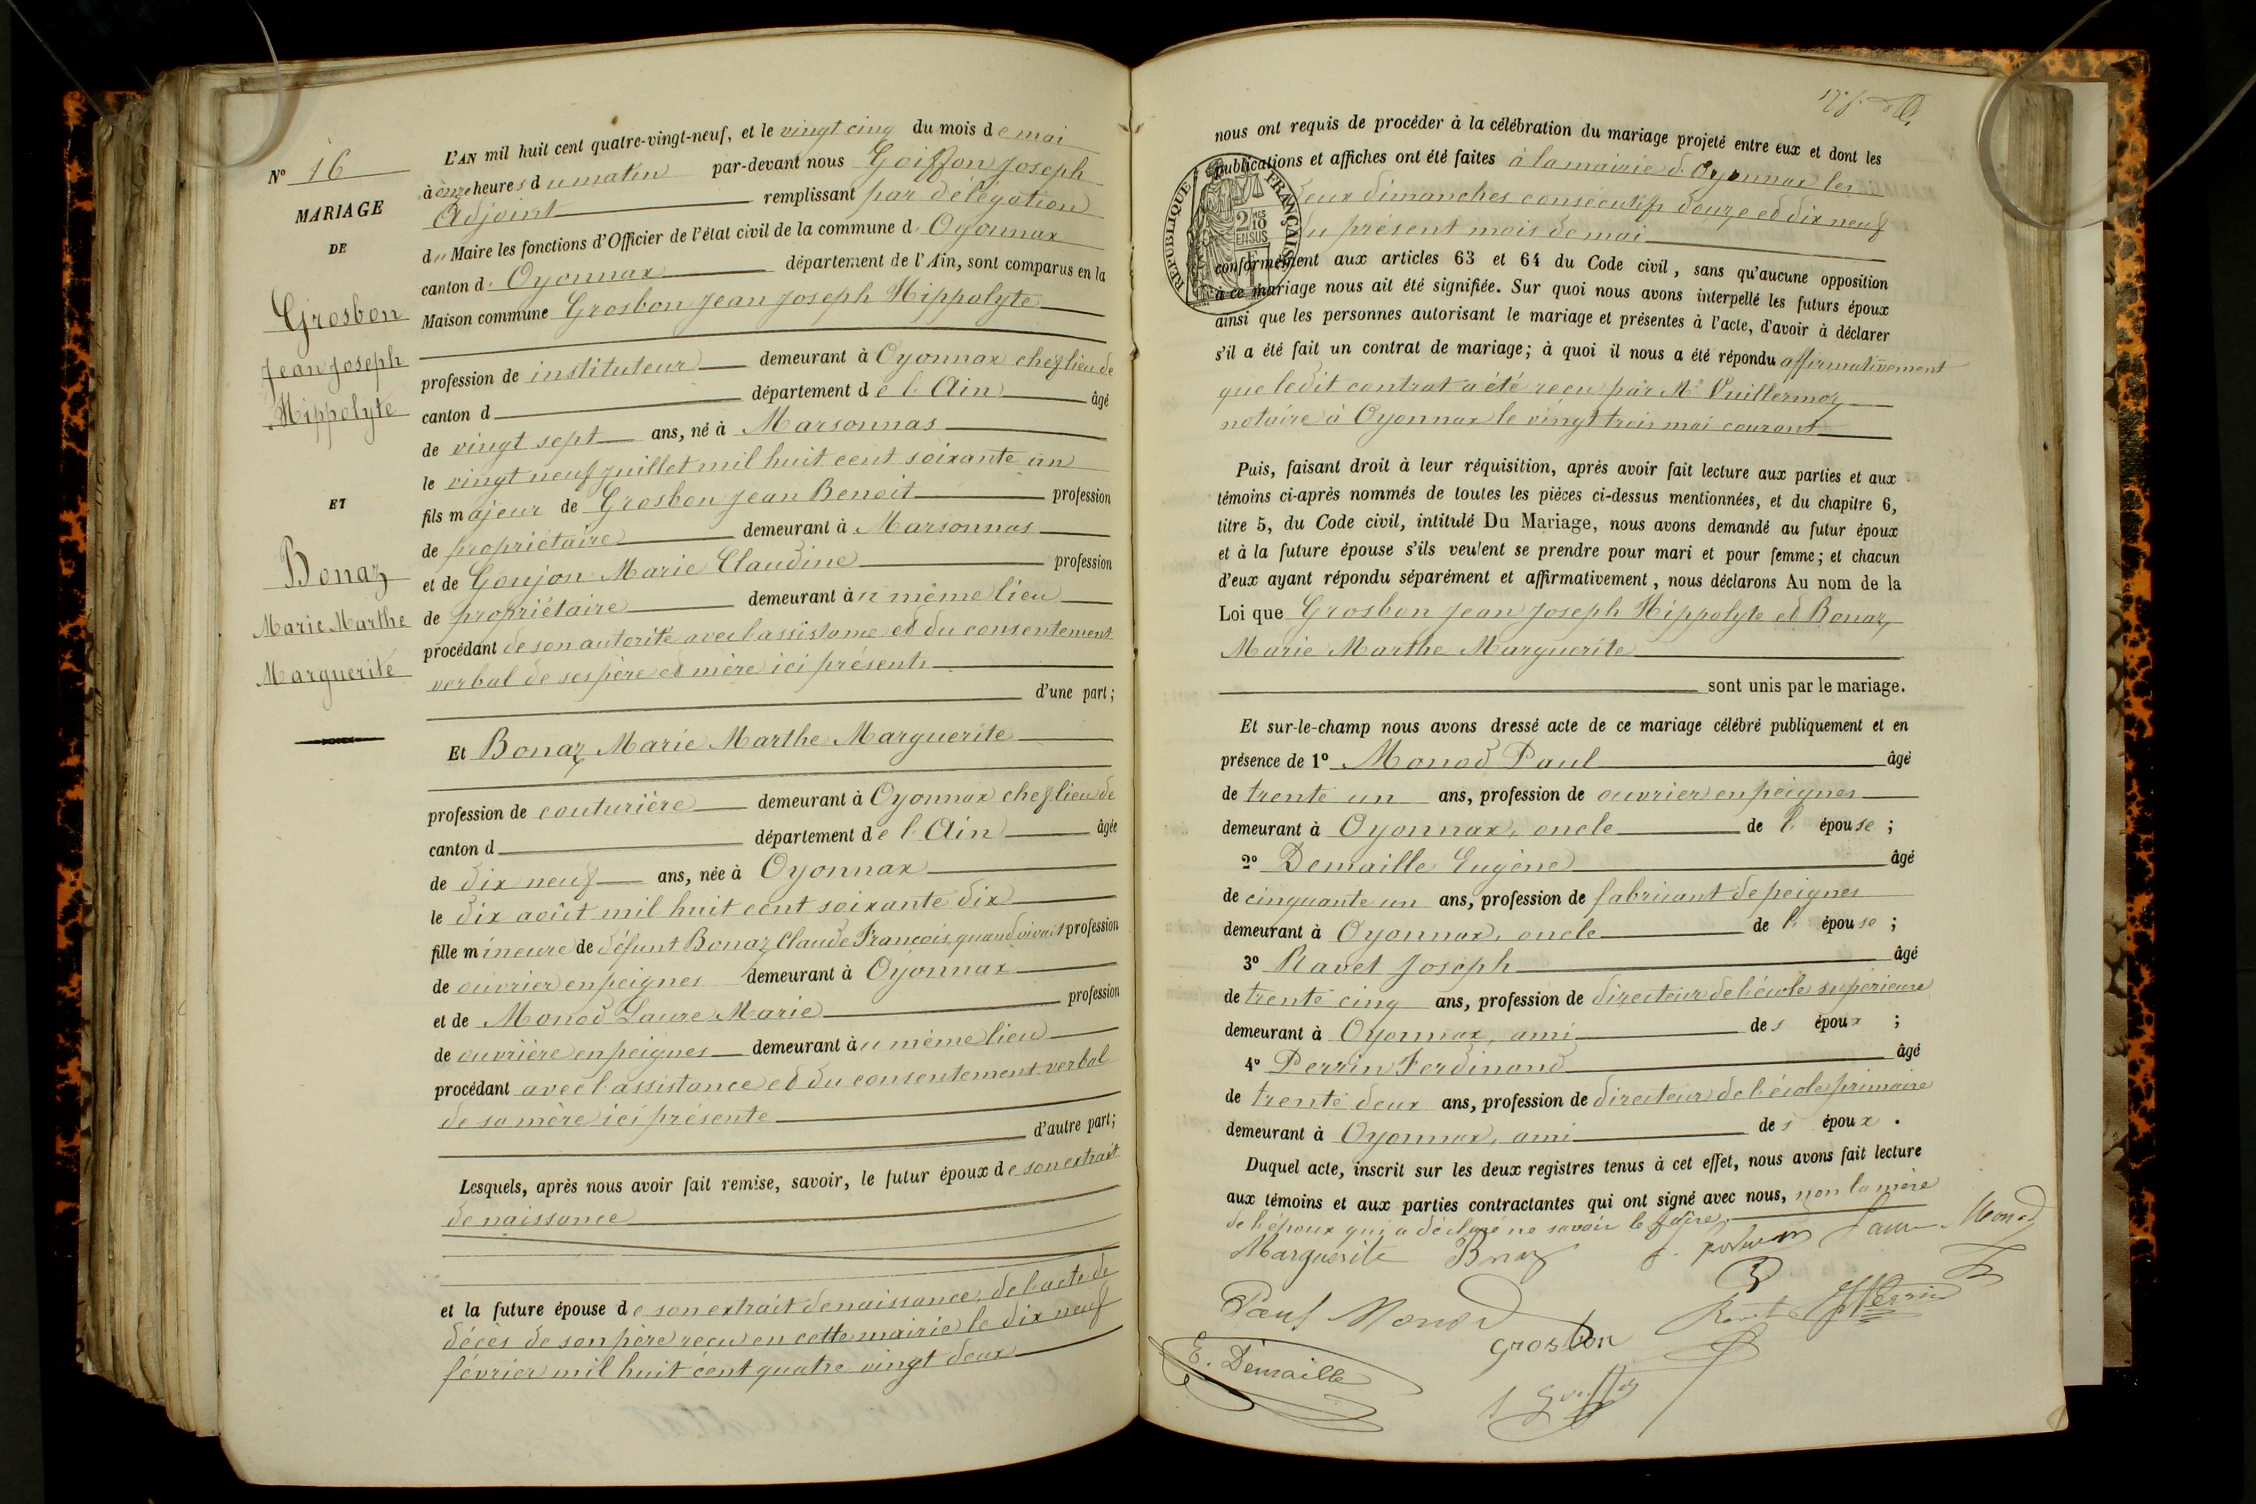 N° 16
MARIAGE
DE
Grosbon
Jean Joseph
Hippolyte
ET
Bonaz
Marie Marthe
Marguerite
L'AN mil huit cent quatre-vingt-neuf, et le vingt cinq du mois de mai
à onze heures du matin par-devant nous Goiffon Joseph
Adjoint remplissant par délégation
du Maire les fonctions d'Officier de l'état civil de la commune d' Oyonnax
canton d' Oyonnax département de l'Ain, sont comparus en la
Maison commune Grosbon Jean Joseph Hippolyte
profession de instituteur demeurant à Oyonnax chef lieu de
canton d département de l'Ain âgé
de vingt sept ans, né à Marsonnas
le vingt neuf juillet mil huit cent soixante un
fils majeur de Grosbon Jean Benoit profession
de propriétaire demeurant à Marsonnas
et de Goujon Marie Claudine profession
de propriétaire demeurant au même lieu
procédant de son autorité avec l'assistance et du consentement
verbal de ses père et mère ici présents
d'une part;
Et Bonaz Marie Marthe Marguerite
profession de couturière demeurant à Oyonnax chef lieu de
canton d département de l'Ain âgée
de dix neuf ans, née à Oyonnax
le dix août mil huit cent soixante dix
fille mineure de défunt Bonaz Claude François, quand vivait profession
de ouvrier en peignes demeurant à Oyonnax
et de Monod Laure Marie profession
de ouvrière en peignes demeurant au même lieu
procédant avec l'assistance et du consentement verbal
de sa mère ici présente
d'autre part;
Lesquels, après nous avoir fait remise, savoir, le futur époux de son extrait
de naissance
et la future épouse de son extrait de naissance, de l'acte de
décès de son père reçu en cette mairie le dix neuf
février mil huit cent quatre vingt deux
nous ont requis de procéder à la célébration du mariage projeté entre eux et dont les
publications et affiches ont été faites à la mairie d'Oyonnax les
deux dimanches consécutifs douze et dix neuf
du présent mois de mai
RÉPUBLIQUE FRANÇAISE
2/10 EN SUS
conformément aux articles 63 et 64 du Code civil, sans qu'aucune opposition
à ce mariage nous ait été signifiée. Sur quoi nous avons interpellé les futurs époux
ainsi que les personnes autorisant le mariage et présentes à l'acte, d'avoir à déclarer
s'il a été fait un contrat de mariage; à quoi il nous a été répondu affirmativement
que le dit contrat a été reçu par Me Vuillermoz
notaire à Oyonnax le vingt trois mai courant
Puis, faisant droit à leur réquisition, après avoir fait lecture aux parties et aux
témoins ci-après nommés de toutes les pièces ci-dessus mentionnées, et du chapitre 6,
titre 5, du Code civil, intitulé Du Mariage, nous avons demandé au futur époux
et à la future épouse s'ils veulent se prendre pour mari et pour femme; et chacun
d'eux ayant répondu séparément et affirmativement, nous déclarons Au nom de la
Loi que Grosbon Jean Joseph Hippolyte et Bonaz
Marie Marthe Marguerite
sont unis par le mariage.
Et sur-le-champ nous avons dressé acte de ce mariage célébré publiquement et en
présence de 1° Monod Paul âgé
de trente un ans, profession de ouvrier en peignes
demeurant à Oyonnax, oncle de l' épouse ;
2° Demaille Eugène âgé
de cinquante un ans, profession de fabricant de peignes
demeurant à Oyonnax, oncle de l' épouse ;
3° Ravet Joseph âgé
de trente cinq ans, profession de directeur de l'école supérieure
demeurant à Oyonnax, ami des époux ;
4° Perrin Ferdinand âgé
de trente deux ans, profession de directeur de l'école primaire
demeurant à Oyonnax, ami des époux .
Duquel acte, inscrit sur les deux registres tenus à cet effet, nous avons fait lecture
aux témoins et aux parties contractantes qui ont signé avec nous, non la mère
de l'époux qui a déclaré ne savoir le faire
Marguerite Bonaz Laure Monod
Paul Monod Grosbon Ravet Perrin
E. Demaille
J Goiffon